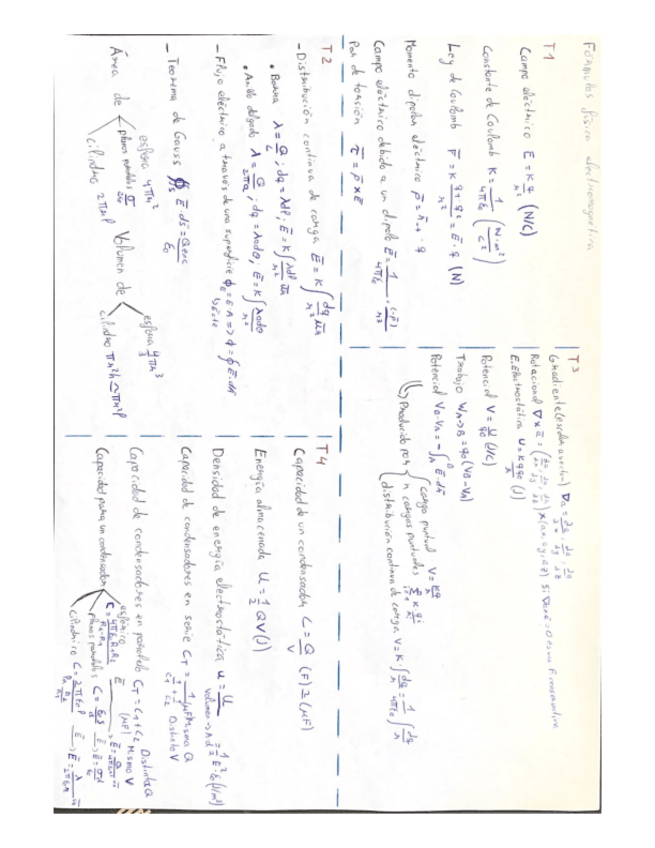 Fórmulas física electromagnética
T1
Campo eléctrico E = K q/r² (N/C)
Constante de Coulomb K = 1/4πε₀ (N·m²/C²)
Ley de Coulomb F = K q₁·q₂/r² = E·q (N)
Momento dipolar eléctrico p =
Campo eléctrico debido a un dipolo E = 1/4πε₀ · (-p)/r³
Par de torsión τ = p × E
T2
- Distribución continua de carga E = K ∫ dq/r² ur
• Barra λ = Q/L ; dq = λdl ; E = K ∫ λdl/r² ur
• Anillo delgado λ = Q/2πa ; dq = λadθ ; E = K ∫ λadθ/r²
- Flujo eléctrico a través de una superficie ϕE = E·A => ϕ = ∮ E·ds
- Teorema de Gauss ∮s E·ds = Qenc/ε₀
Área de
esfera 4πr²
planos paralelos
cilindro 2πrl
Volumen de
esfera 4/3 πr³
cilindro πr²h ≃ πr²l
T3
Gradiente (escalar a vector) ∇a = ∂a/∂x, ∂a/∂y, ∂a/∂z
Rotacional ∇ × a = (∂/∂x, ∂/∂y, ∂/∂z) × (ax, ay, az)
E. Electrostática U = K q q₀/r (J)
Potencial V = U/q₀ (J/C)
Trabajo WA→B = q₀ (VB - VA)
Potencial VB - VA = - ∫ E·dr
Producido por
carga puntual V = Kq/r
n cargas puntuales
distribución continua de carga V = K · ∫ dq/r = 1/4πε₀ ∫ dq/r
T4
Capacidad de un condensador C = Q/V (F) (μF)
Energía almacenada U = 1/2 QV (J)
Densidad de energía electrostática u = U/volumen = 1/2 E²·ε₀ (J/m³)
Capacidad de condensadores en serie CT = 1/(1/C₁ + 1/C₂) (μF) Misma Q Distinto V
Capacidad de condensadores en paralelo CT = C₁ + C₂ (μF) Distinta Q Mismo V
Capacidad para un condensador
esférico C = 4πε₀R₁R₂/R₂-R₁
planos paralelos C = ε₀S/d
cilíndrico C =